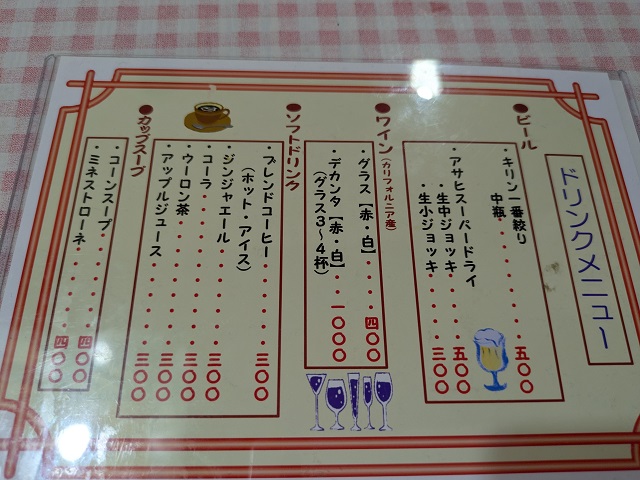 ドリンクメニュー
●ビール
・キリン一番絞り
中瓶・・・・・・五〇〇
・アサヒスーパードライ
・生中ジョッキ・・・・五〇〇
・生小ジョッキ・・・・三〇〇
●ワイン(カリフォルニア産)
・グラス【赤・白】・・・・四〇〇
・デカンタ【赤・白】・・一〇〇〇
(グラス3～4杯)
●ソフトドリンク
・ブレンドコーヒー・・・・・三〇〇
(ホット・アイス)
・ジンジャエール・・・・・三〇〇
・コーラ・・・・・・・・三〇〇
・ウーロン茶・・・・・・三〇〇
・アップルジュース・・・・三〇〇
●カップスープ
・コーンスープ・・・・・・四〇〇
・ミネストローネ・・・・・四〇〇